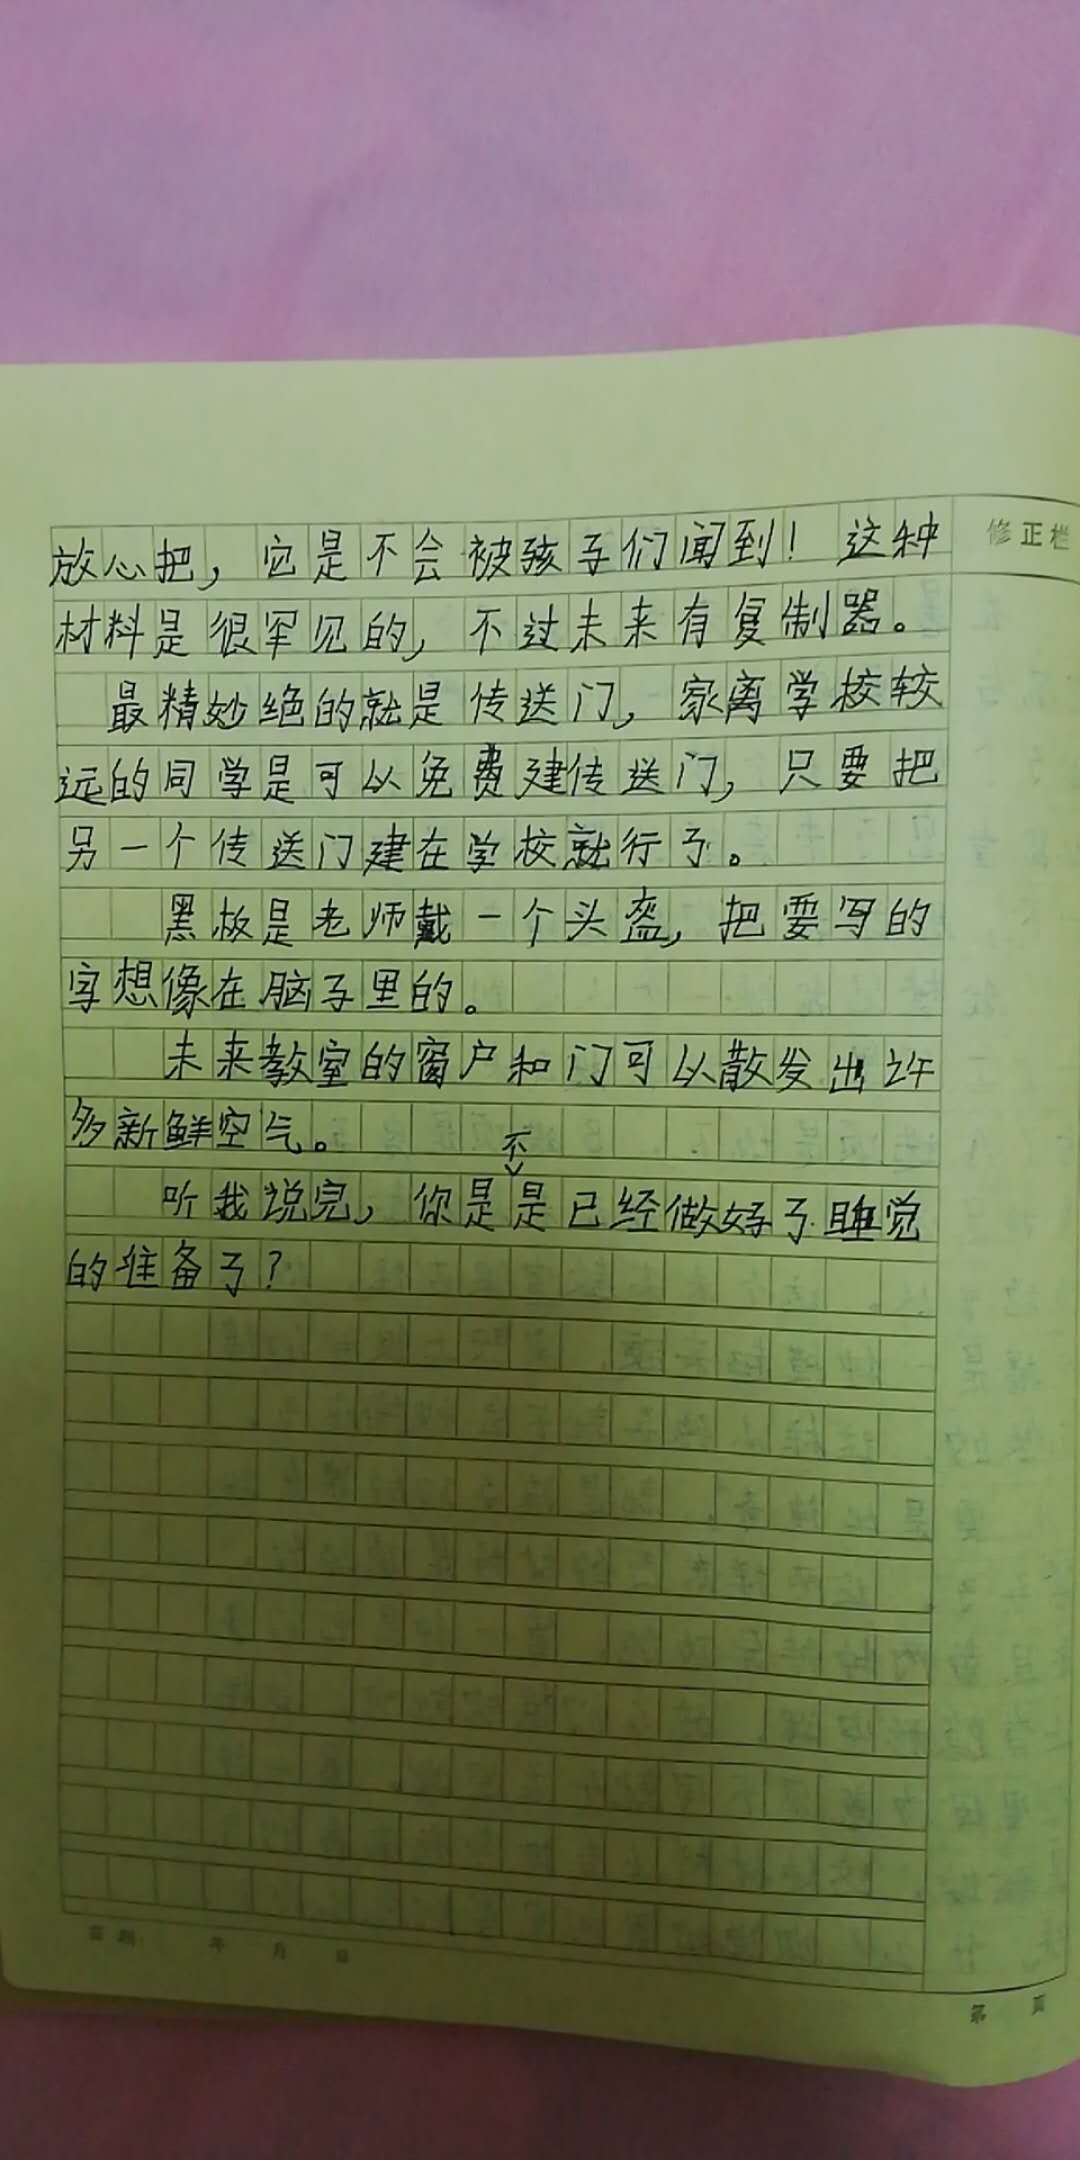 修正栏
放心把，它是不会被孩子们闻到！这种
材料是很罕见的，不过未来有复制器。
最精妙绝的就是传送门，家离学校较
远的同学是可以免费建传送门，只要把
另一个传送门建在学校就行了。
黑板是老师戴一个头盔，把要写的
字想像在脑子里的。
未来教室的窗户和门可以散发出许
多新鲜空气。
听我说完，你是不是已经做好了睡觉
的准备了？
年 月 日
第 页